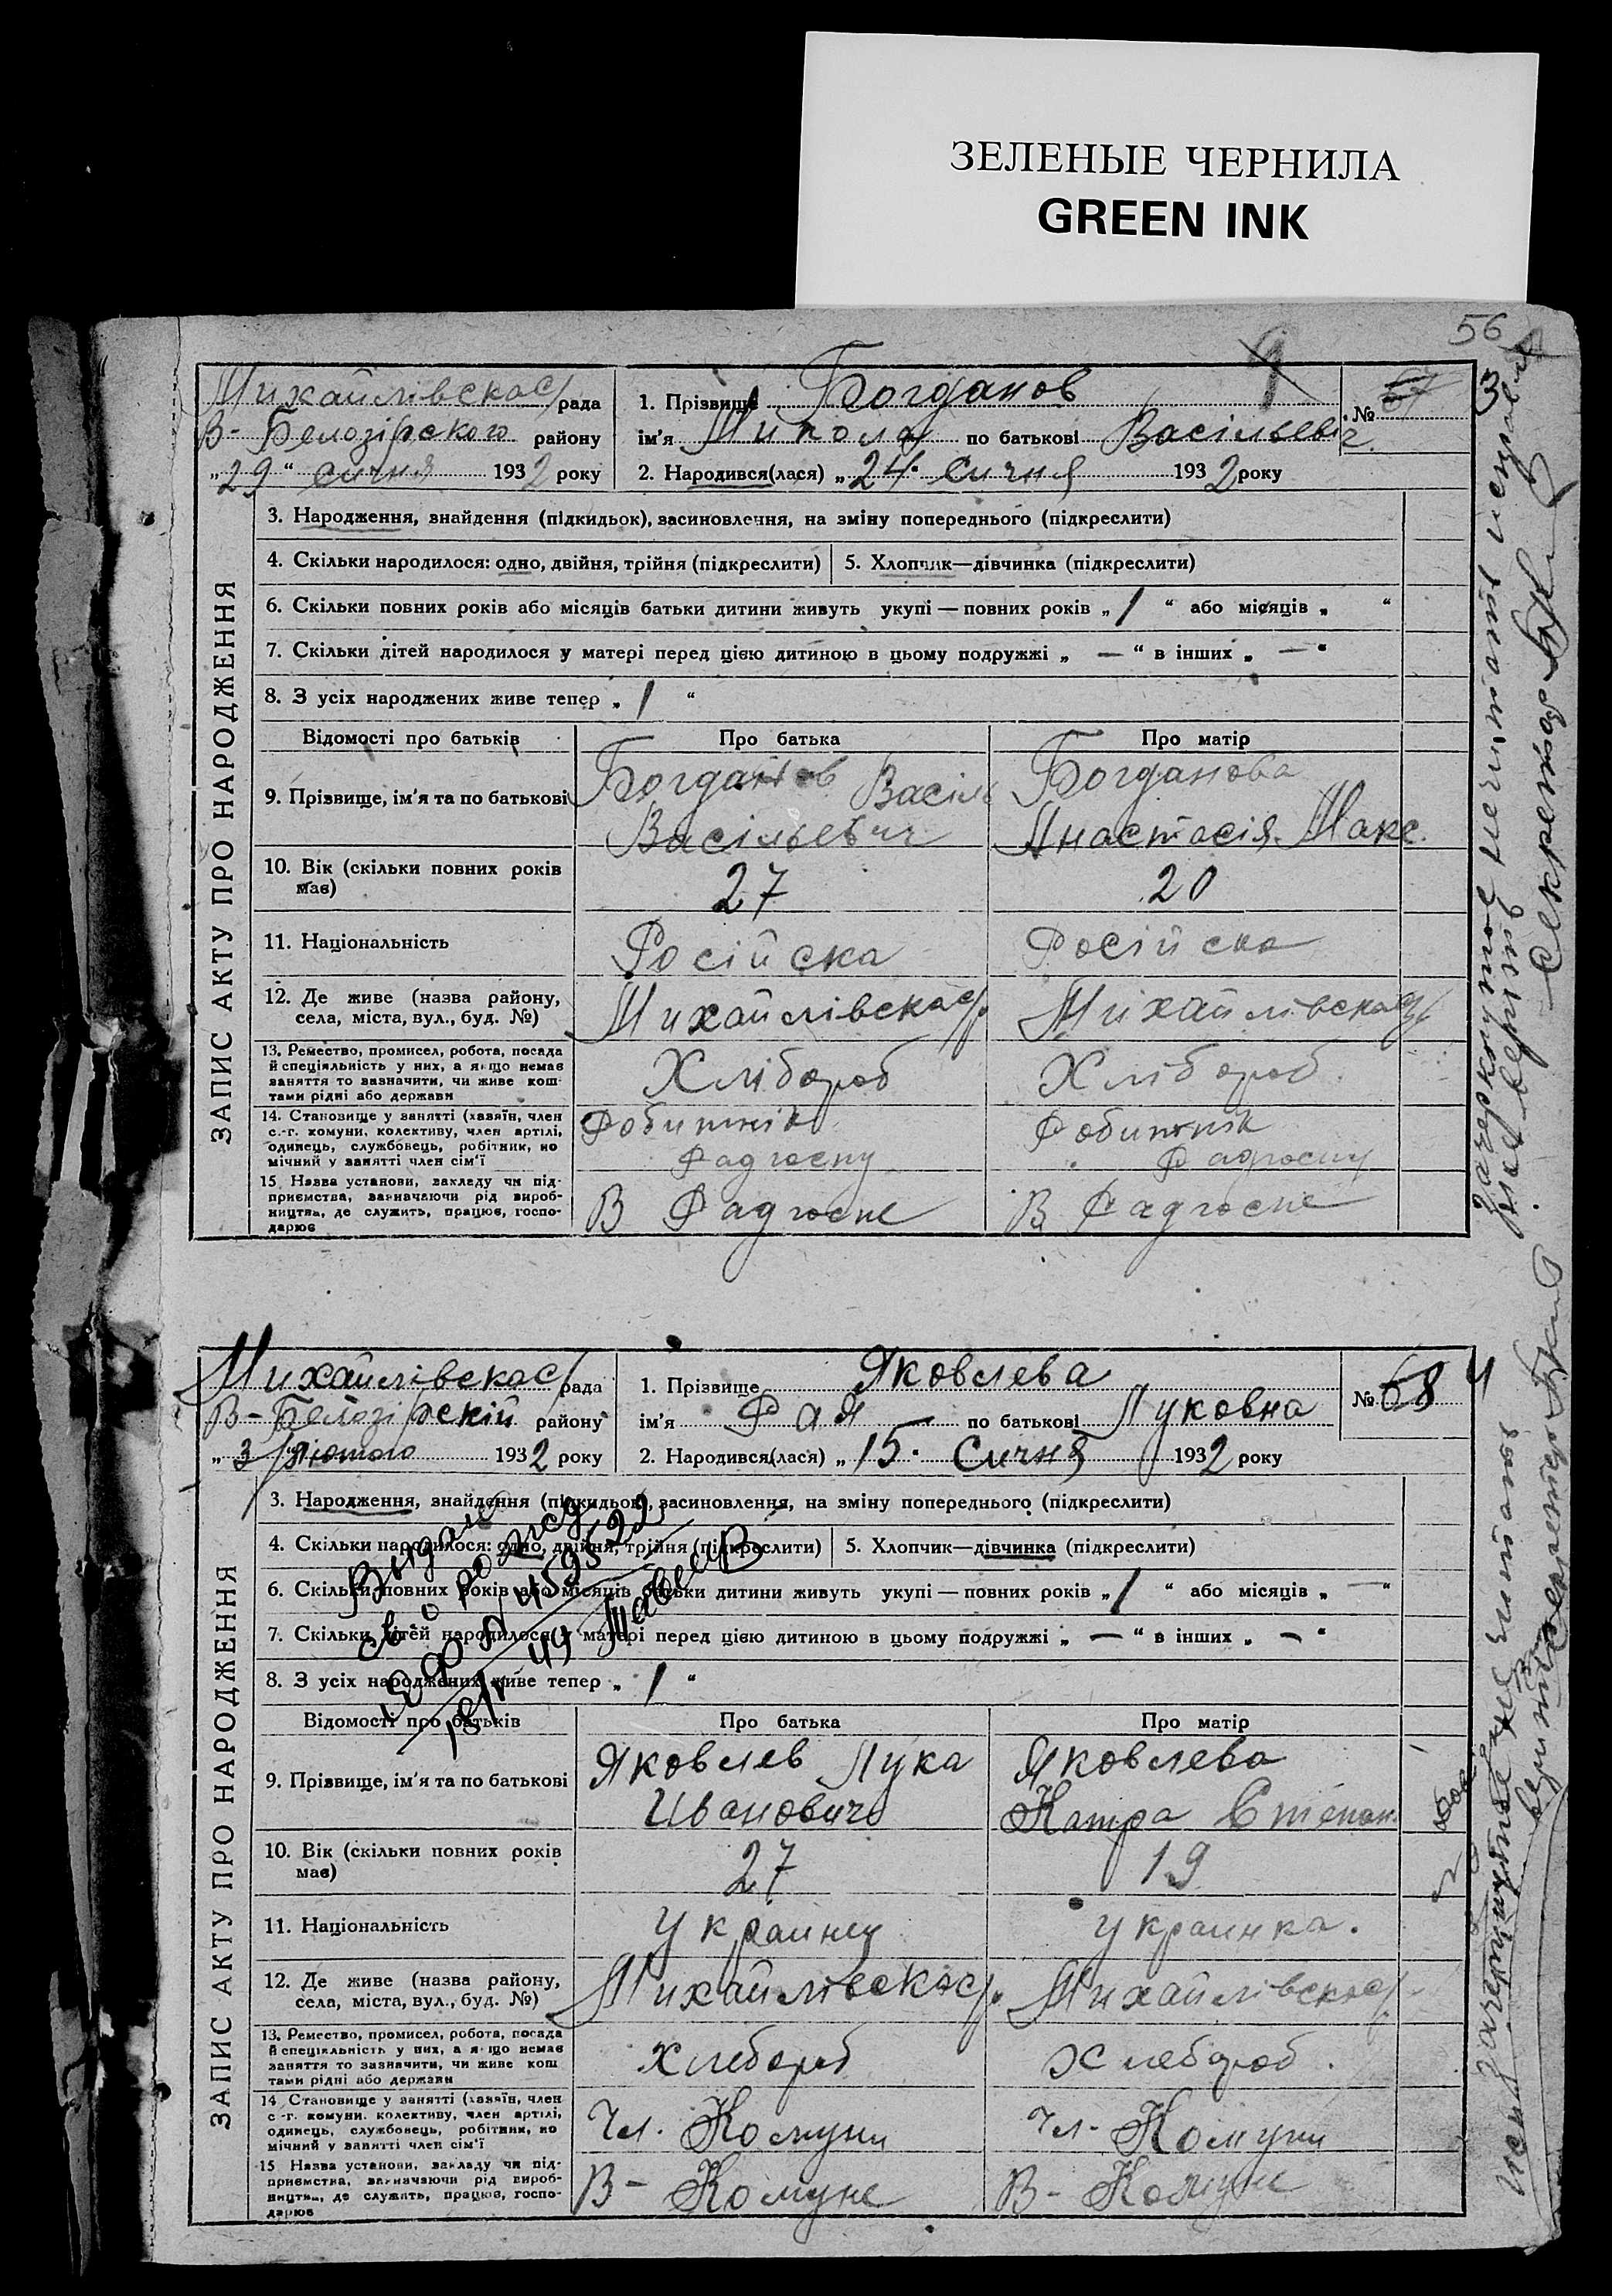 ЗЕЛЕНЫЕ ЧЕРНИЛА
GREEN INK
56
Михайлівска с/рада
1. Прізвище Богданов
№ 67
3
В-Белозірского району
ім'я Микола по батькові Васільевіч.
„29" сичня 1932 року
2. Народився(лася) „24. Сичня 1932 року
ЗАПИС АКТУ ПРО НАРОДЖЕННЯ
3. Народження, знайдення (підкидьок), засиновлення, на зміну попереднього (підкреслити)
4. Скільки народилося: одно, двійня, трійня (підкреслити)
5. Хлопчик—дівчинка (підкреслити)
6. Скільки повних років або місяців батьки дитини живуть укупі — повних років „ 1 " або місяців „ "
7. Скільки дітей народилося у матері перед цією дитиною в цьому подружжі „ — " в інших „ — "
8. З усіх народжених живе тепер „ 1 "
Відомості про батьків
Про батька
Про матір
9. Прізвище, ім'я та по батькові
Богданов Васіль
Васільевич
Богданова
Анастасія Макс.
10. Вік (скільки повних років
має)
27
20
11. Національність
Російска
Російска
12. Де живе (назва району,
села, міста, вул., буд. №)
Михайлівска с/р.
Михайлівска с/р
13. Ремество, промисел, робота, посада
й спеціяльність у них, а якщо немає
заняття то зазначити, чи живе кош-
тами рідні або держави
Хлібороб
Хлібороб
14. Становище у занятті (хазяїн, член
с.-г. комуни, колективу, член артілі,
одинець, службовець, робітник, по
мічний у занятті член сім'ї
Робитнік
Радгоспу
Робитнік
Радгоспу
15. Назва установи, закладу чи під-
приємства, зазначаючи рід вироб-
ництва, де служить, працює, госпо-
дарює
В Радгоспе
В Радгоспе
Зачеркнутое нечитать исправле
верить
Секретарь
Михайлівска с/рада
1. Прізвище Яковлева
№ 68
4
В-Белозірскій району
ім'я Рая по батькові Луковна
„3" Лютого 1932 року
2. Народився(лася) „15. Сичня 1932 року
ЗАПИС АКТУ ПРО НАРОДЖЕННЯ
3. Народження, знайдення (підкидьок), засиновлення, на зміну попереднього (підкреслити)
4. Скільки народилося: одно, двійня, трійня (підкреслити)
5. Хлопчик—дівчинка (підкреслити)
6. Скільки повних років або місяців батьки дитини живуть укупі — повних років „ 1 " або місяців „ — "
7. Скільки дітей народилося у матері перед цією дитиною в цьому подружжі „ — " в інших „ — "
8. З усіх народжених живе тепер „ 1 "
Выдано
св. о рожд
459522
Відомості про батьків
Про батька
Про матір
9. Прізвище, ім'я та по батькові
Яковлев Лука
Ивановичь
Яковлева
Катра Степан.
10. Вік (скільки повних років
має)
27
19
11. Національність
Украинц
украинка.
12. Де живе (назва району,
села, міста, вул., буд. №)
Михайлівска с/р.
Михайлівска с/р
13. Ремество, промисел, робота, посада
й спеціяльність у них, а якщо немає
заняття то зазначити, чи живе кош
тами рідні або держави
Хлебороб
Хлебороб.
14. Становище у занятті (хазяїн, член
с-г. комуни, колективу, член артілі,
одинець, службовець, робітник, по
мічний у занятті член сім'ї
Чл. Комуни
Чл. Комуни
15 Назва установи, закладу чи під-
приємства, зазначаючи рід вироб-
ництва, де служить, працює, госпо-
дарює
В- Комуне
В- Комуне